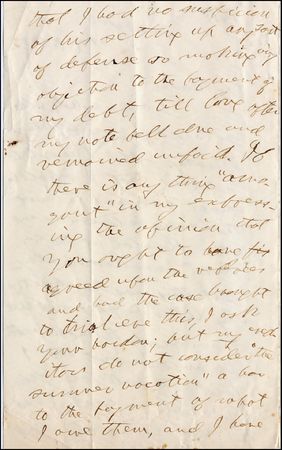 that I had no suspicion
of his setting up any sort
of defense or making any
objection to the payment of
my debt, till long after
my note fell due and
remained unpaid. If
there is any thing "arro-
gant" in my express-
ing the opinion that
you ought to have
agreed upon the referees
and had the case brought
to trial ere this, I ask
your pardon; but my cred-
itors do not consider "the
summer vacation" a bar
to the payment of what
I owe them, and I have